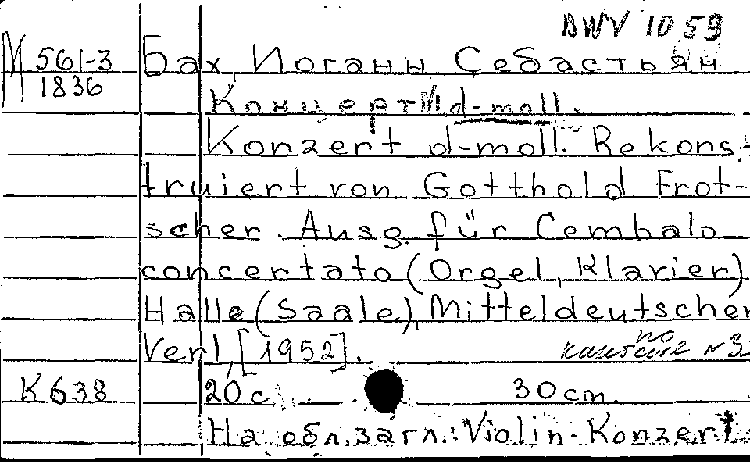 BWV 1059
М 561-3 Бах, Иоганн Себастьян
1836
Концерт d-moll.
Konzert d-moll. Rekons-
truiert von Gotthold Frot-
scher. Ausg. für Cembalo
concertato (Orgel, Klavier)
Halle (Saale), Mitteldeutscher
Verl, [1952].
по
кантате N 35
К 638 20 с. 30 cm.
На обл. загл.: Violin-Konzert.